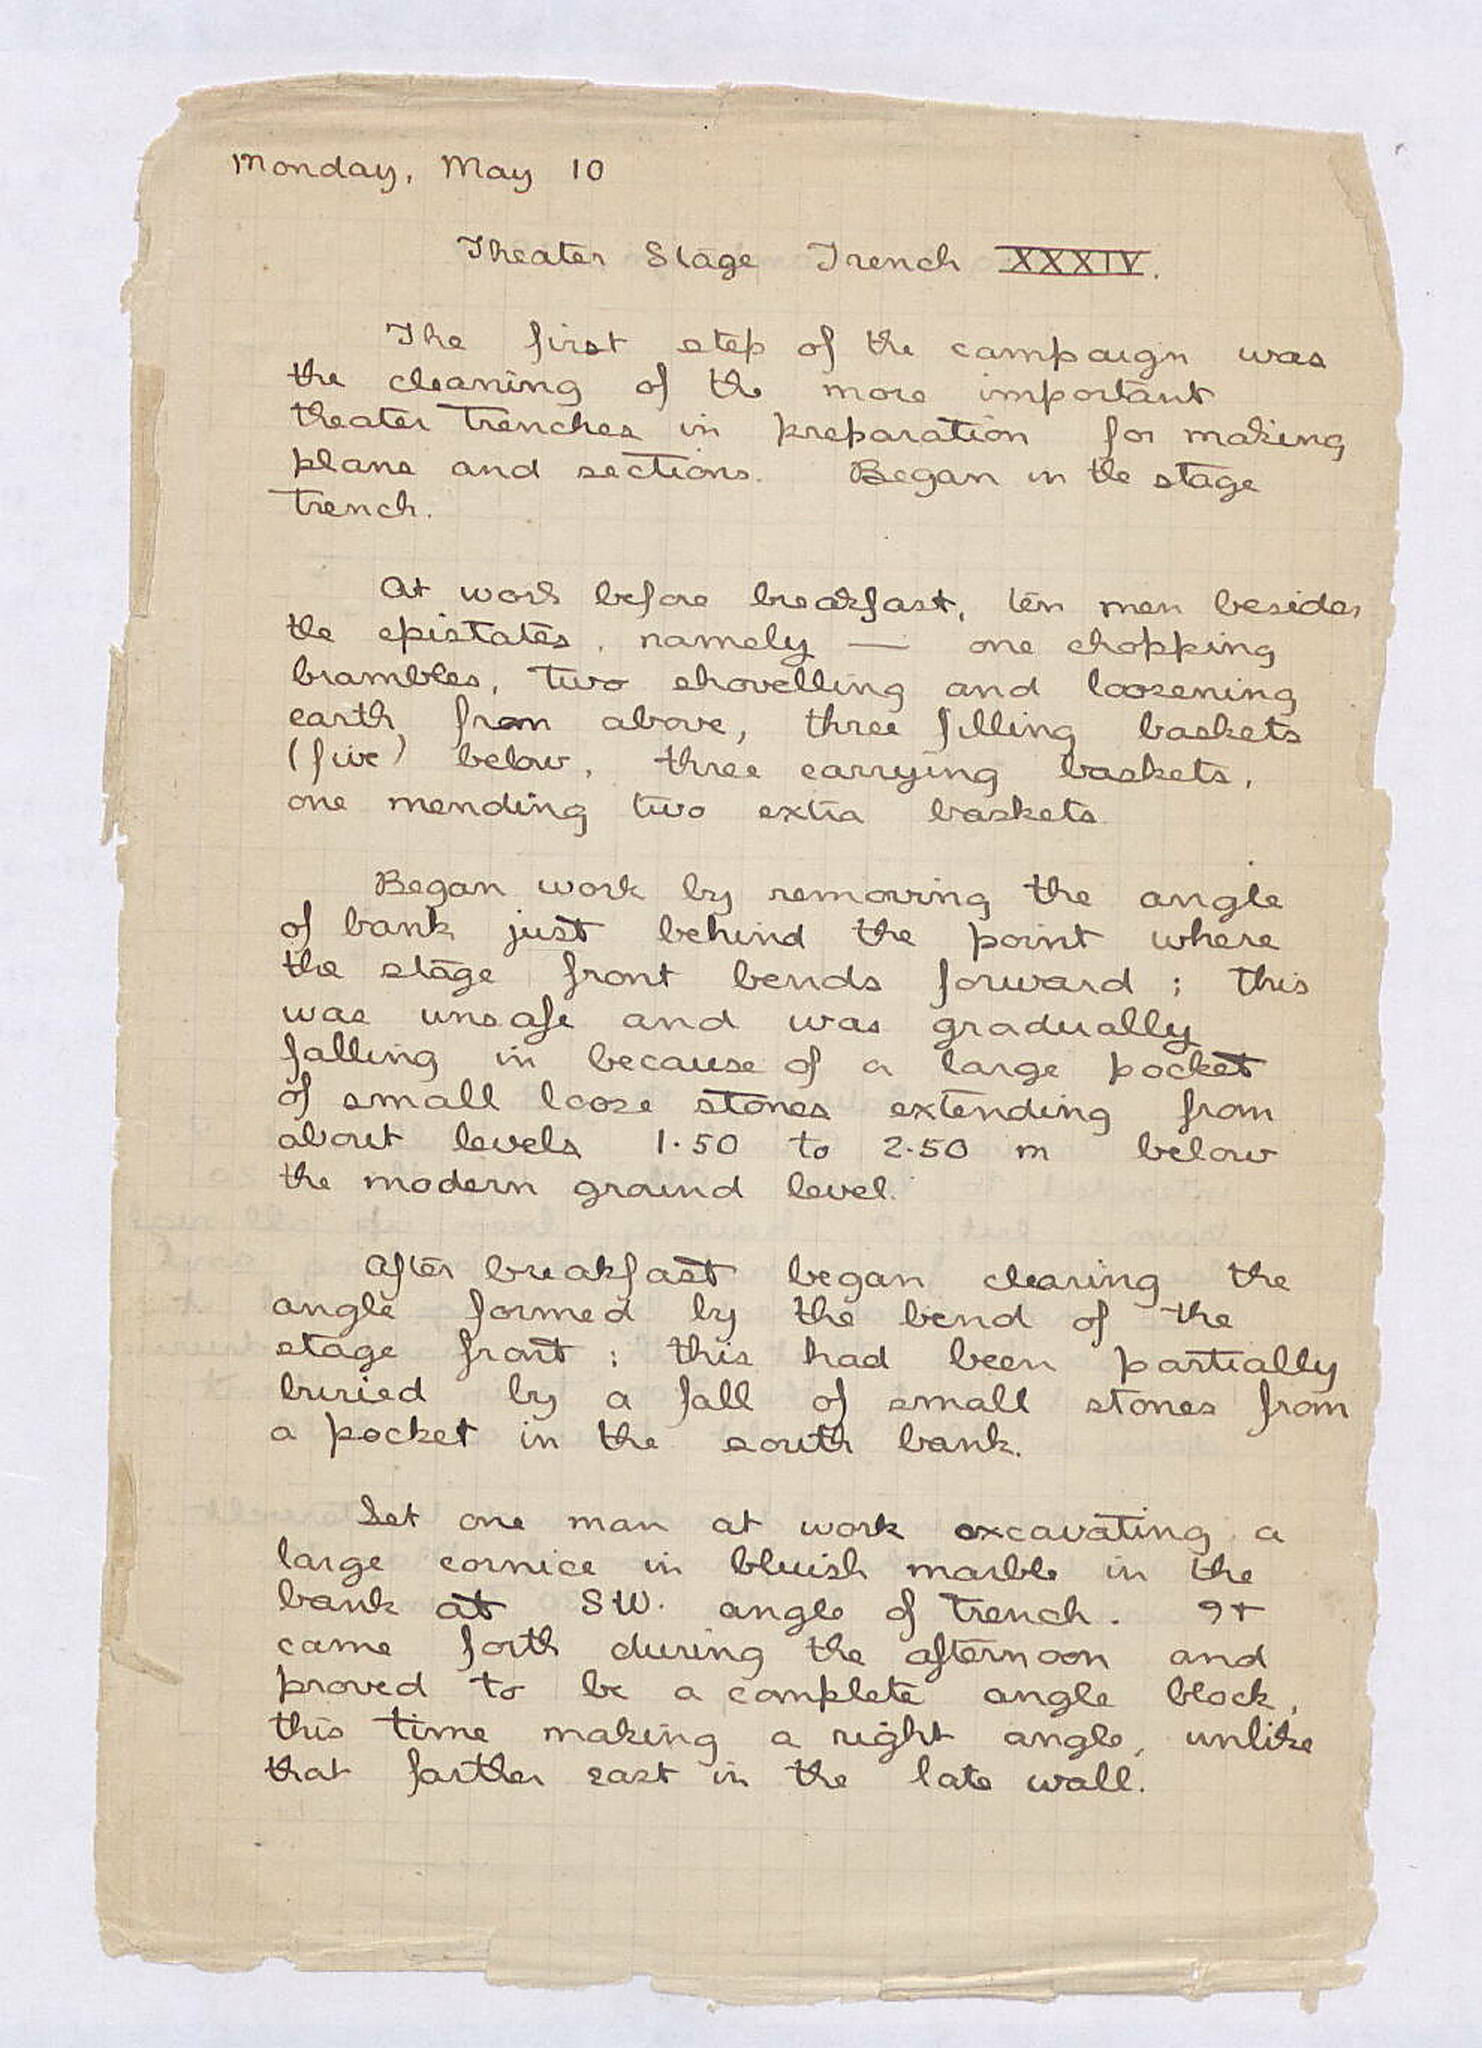 Monday, May 10
Theater Stage Trench XXXIV.
The first step of the campaign was
the cleaning of the more important
theater trenches in preparation for making
plans and sections. Began in the stage
trench.
At work before breakfast, ten men besides
the epistates, namely — one chopping
brambles, two shovelling and loosening
earth from above, three filling baskets
(five) below, three carrying baskets,
one mending two extra baskets
Began work by removing the angle
of bank just behind the point where
the stage front bends forward; this
was unsafe and was gradually
falling in because of a large pocket
of small loose stones extending from
about levels 1.50 to 2.50 m below
the modern ground level.
After breakfast began clearing the
angle formed by the bend of the
stage front; this had been partially
buried by a fall of small stones from
a pocket in the south bank.
Set one man at work excavating a
large cornice in bluish marble in the
bank at SW. angle of trench. It
came forth during the afternoon and
proved to be a complete angle block,
this time making a right angle, unlike
that farther east in the late wall.